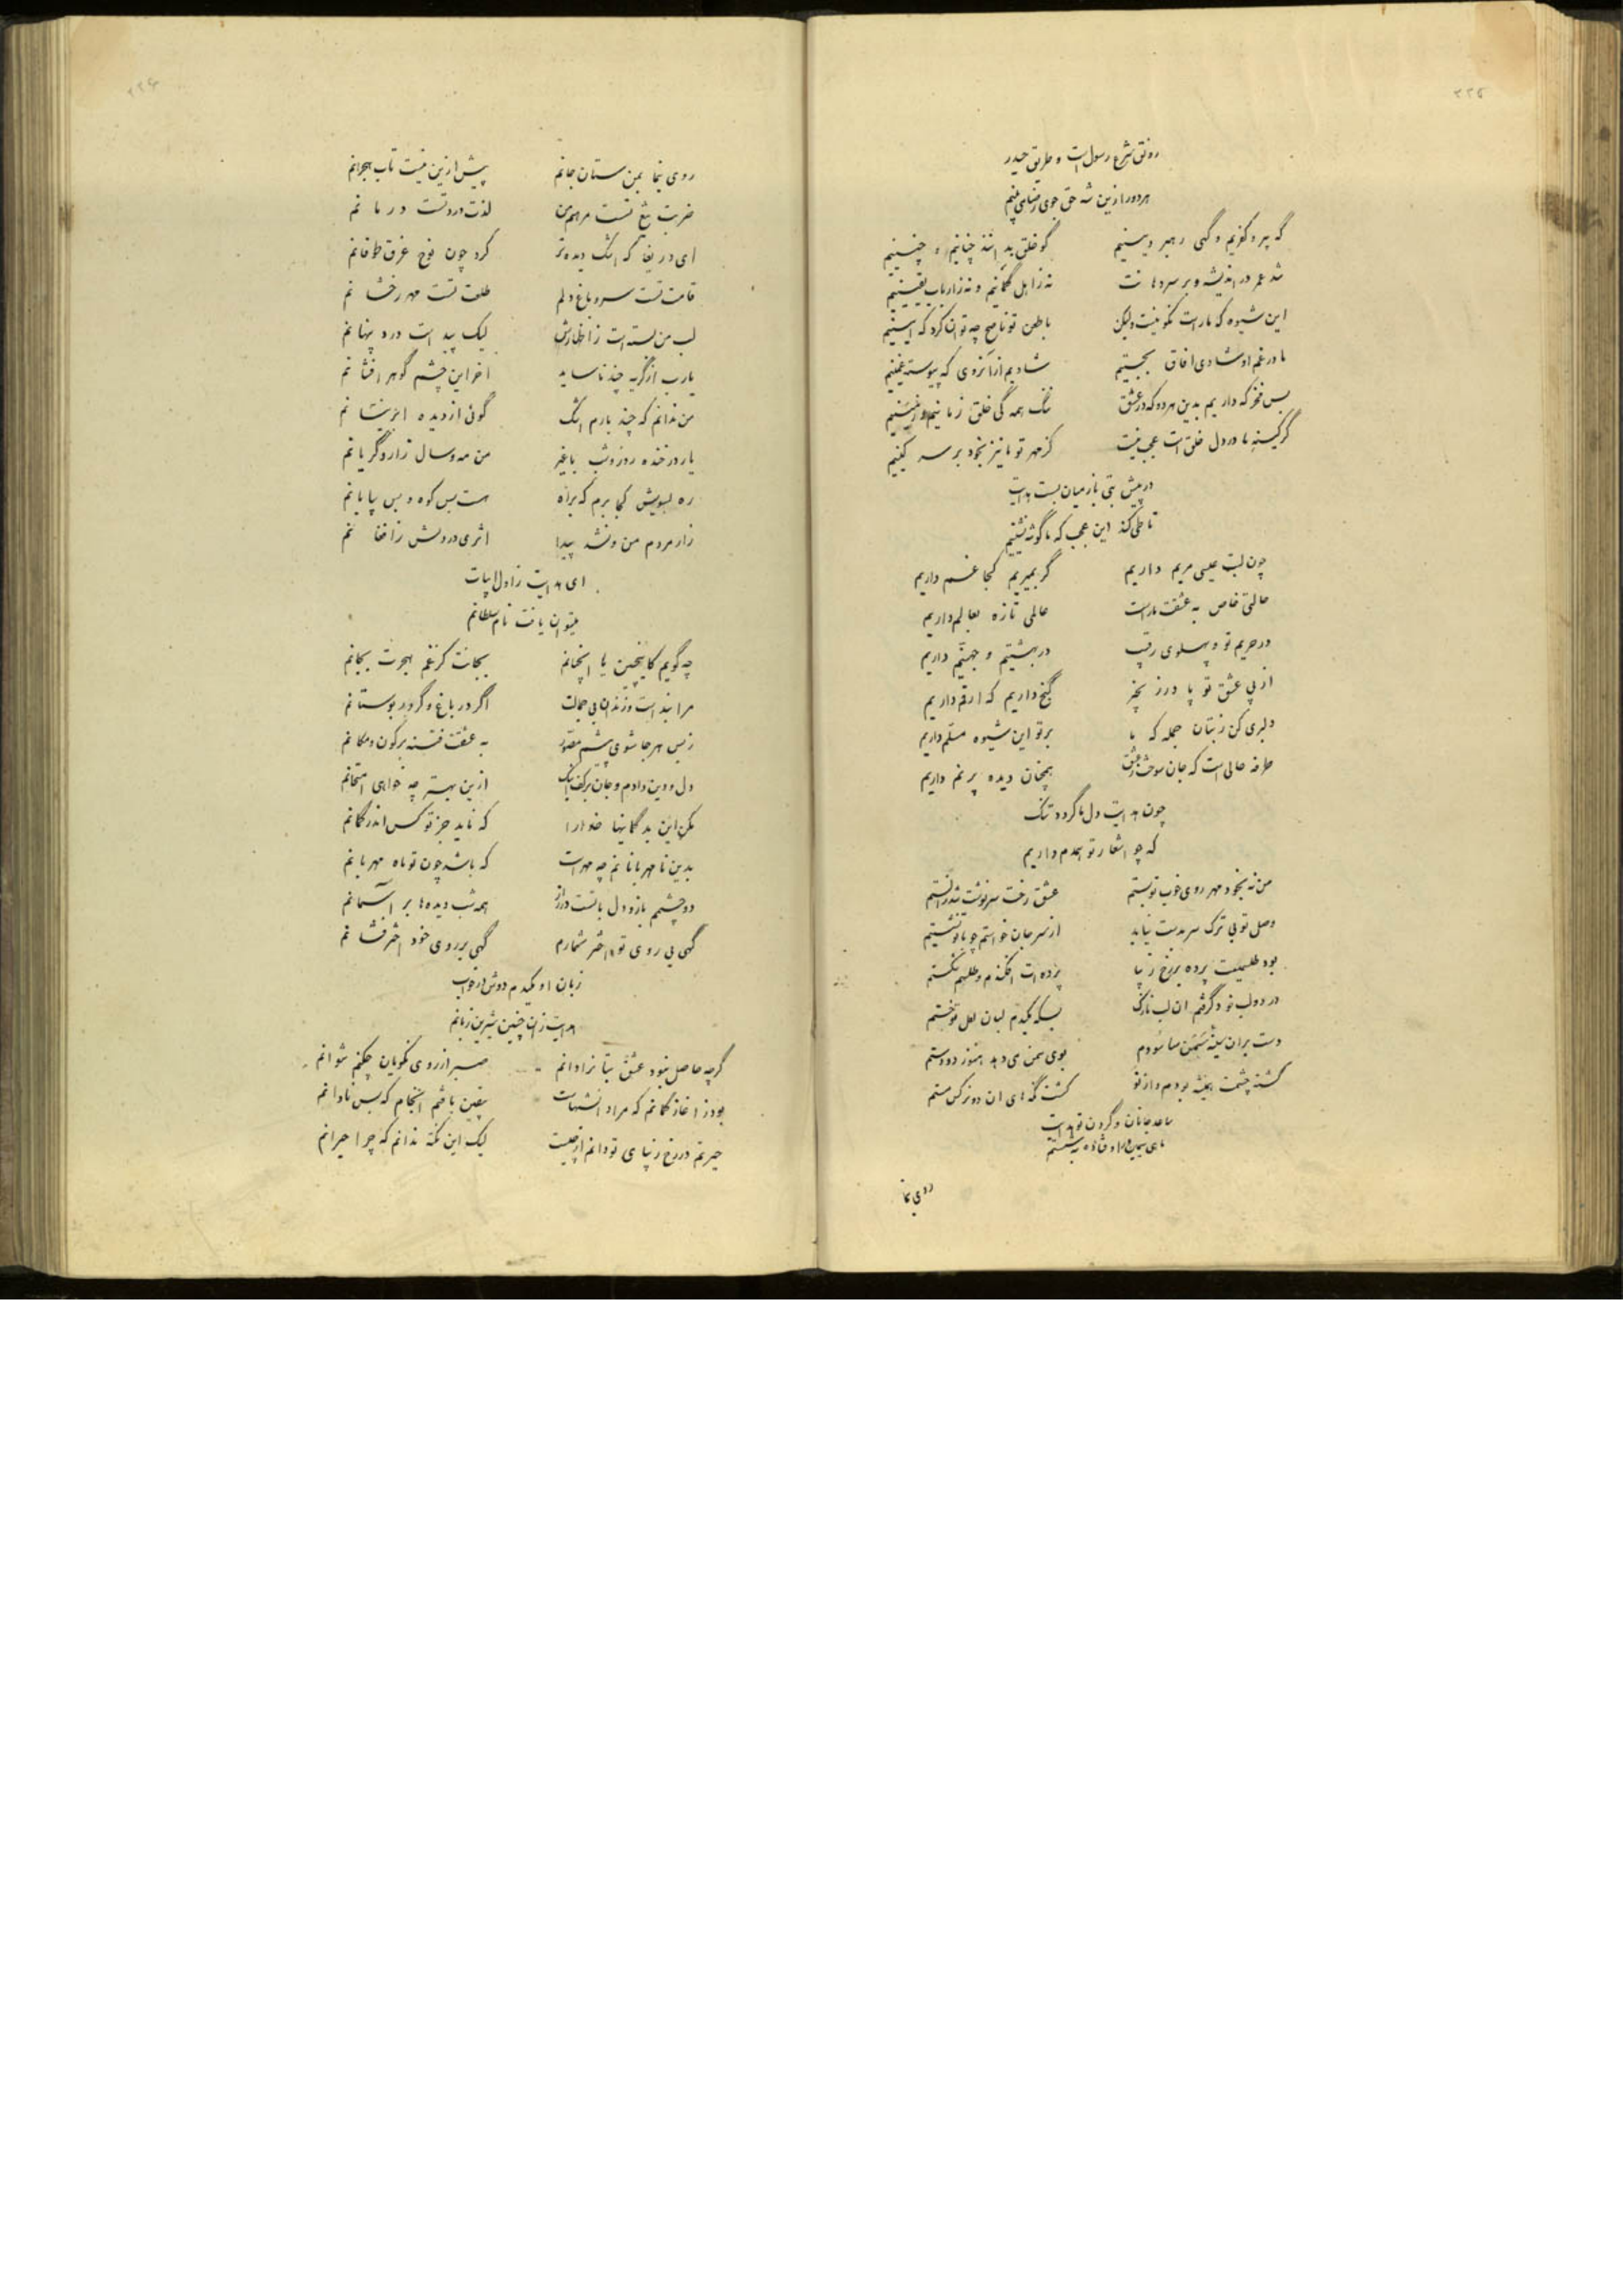 ۲۲۵
رونق شرع رسول است و طریق حیدر
هر دو را زین شه حق جوی رضا می‌بینم
گه پیرو کفریم و گهی رهبر دینیم گو خلق بدانند چنانیم و چنینیم
شد عمر در اندیشه و بر سر دهانت نه زاهل گمانیم و نه زارباب یقینیم
این شیوه که ماراست نکو نیست ولیکن با طعن تو ناصح چه توان کرد که اینیم
ما در غم او شادی افاق بجستیم شادیم از آنروی که پیوسته غمینیم
بس فخر که داریم بدین هر دو که در عشق ننگ همه گی خلق زمانیم و زمینیم
گر کینه ما در دل خلق است عجب نیست کز مهر تو ما نیز بخود بر سر کینیم
در پیش بتی باز میان بست هدایت
تا طی کند این عجب که ما گوشه نشینیم
چون لبت عیسی مریم داریم گر بمیریم کجا غم داریم
حالتی خاص به عشقت ماراست عالمی تازه بعالم داریم
در حریم تو و پهلوی رقیب در بهشتیم و جهنم داریم
از پی عشق تو پا در زنجیر گنج داریم که ارقم داریم
دلبری کن ز بتان جمله که ما بر تو این شیوه مسلم داریم
طرفه حالی است که جان سوخت ز عشق همچنان دیده پر نم داریم
چون هدایت دل ما گردد تنگ
که چو اشعار تو همدم داریم
من نه بخود مهر روی خوب تو بستم عشق رخت سرنوشت شد ز الستم
وصل تو بی ترک سر بدست نیاید از سر جان خواستم چو با تو نشستم
بود طلسمیت پرده بر رخ زیبا پرده‌ات افکندم و طلسم شکستم
در دو لب خود گرفتم ان لب نازک بسکه مکیدم لبان لعل تو خستم
دست بران سینه سمن سا سودم بوی سمن می دهد هنوز دو دستم
کشته چشمت همیشه بودم و از نو کشت نگه های ان دو نرگس مستم
ساعد جانان و گردن تو هدایت
روی نما
۲۲۶
روی نما بمن ستان جانم پیش ازین نیست تاب هجرانم
ضربت تیغ تست مرهم من لذت درد تست درمانم
ای دریغا که اشک دیده تر کرد چون نوح غرق طوفانم
قامت تست سرو باغ دلم طلعت تست مهر رخشانم
لب من بسته است ز اظهارش لیک پیداست درد پنهانم
یارب از گریه چند ناساید اخر این چشم گوهر افشانم
من ندانم که چند بارم اشک گوئی از دیده ابر نیسانم
یار در خنده روز و شب با غیر من مه و سال زار و گریانم
ره بسویش کجا برم که براه هست بس کوه و بس بیابانم
زار مردم من و نشد پیدا اثری در دلش ز افغانم
ای هدایت ز اول ابیات
میتوان یافت نام سلطانم
چه گویم کاینچنین یا انچنانم بجانت کز غم هجرت بجانم
مرا بند است و زندان بی جمالت اگر در باغ و گر در بوستانم
ز بس هر جا شوی پیشم مصور به عشقت فتنه بر کون و مکانم
دل و دین دادم و جان بر کف اینک ازین بهتر چه خواهی امتحانم
مکن این بد گمانیها خدا را که ناید جز تو کس اندر گمانم
بدین نا مهربانانم چه مهر است که باشد چون تو ماه مهربانم
دو چشم باز و دل با تست در راز همه شب دیده‌ها بر آسمانم
گهی بی روی تو اختر شمارم گهی بر روی خود اختر فشانم
زبان او مکیدم دوش در خواب
هدایت زان چنین شیرین زبانم
گرچه حاصل نبود عشق بتانرا دانم صبر از روی نکویان چکنم نتوانم
بود ز اغاز گمانم که مراد انشهاست بیقین یافتم انجام که بس نادانم
حیرتم در رخ زیبای تو دانم از چیست لیک این نکته ندانم که چرا حیرانم